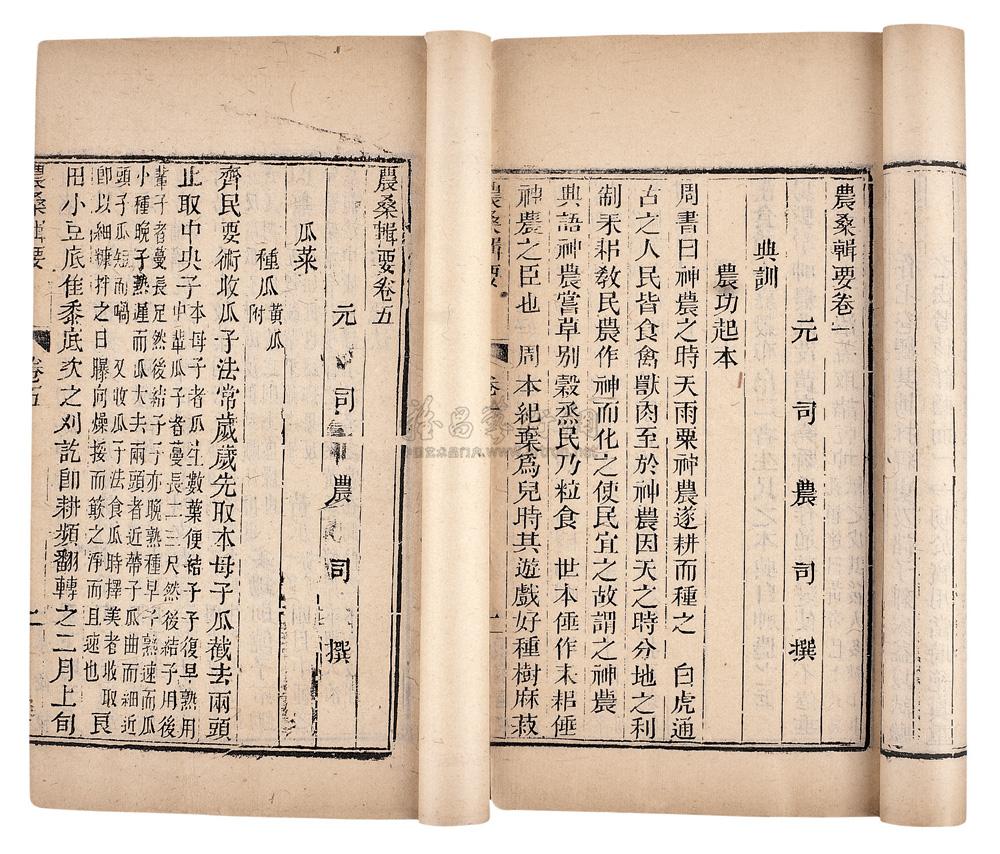 農桑輯要卷一
元司農司撰
典訓
農功起本
周書曰神農之時天雨粟神農遂耕而種之 白虎通
古之人民皆食禽獸肉至於神農因天之時分地之利
制耒耜教民農作神而化之使民宜之故謂之神農
典語神農嘗草別穀烝民乃粒食 世本倕作耒耜倕
神農之臣也 周本紀棄爲兒時其遊戲好種樹麻菽
農桑輯要
卷一
農桑輯要卷五
元司農司撰
瓜菜
種瓜黃瓜附
齊民要術收瓜子法常歲歲先取本母子瓜截去兩頭
止取中央子本母子者瓜生數葉便結子子復早熟用
中輩瓜子者蔓長二三尺然後結子用後
輩子者蔓長足然後結子子亦晚熟種早子熟速而瓜
小種晚子熟遲而瓜大去兩頭者近蒂子瓜曲而細近
頭子瓜短而喎 又收瓜子法食瓜時擇美者收取
即以細糠拌之日曝向燥挼而簸之淨而且速也良
田小豆底佳黍底次之刈訖即耕頻翻轉之二月上旬
農桑輯要
卷五